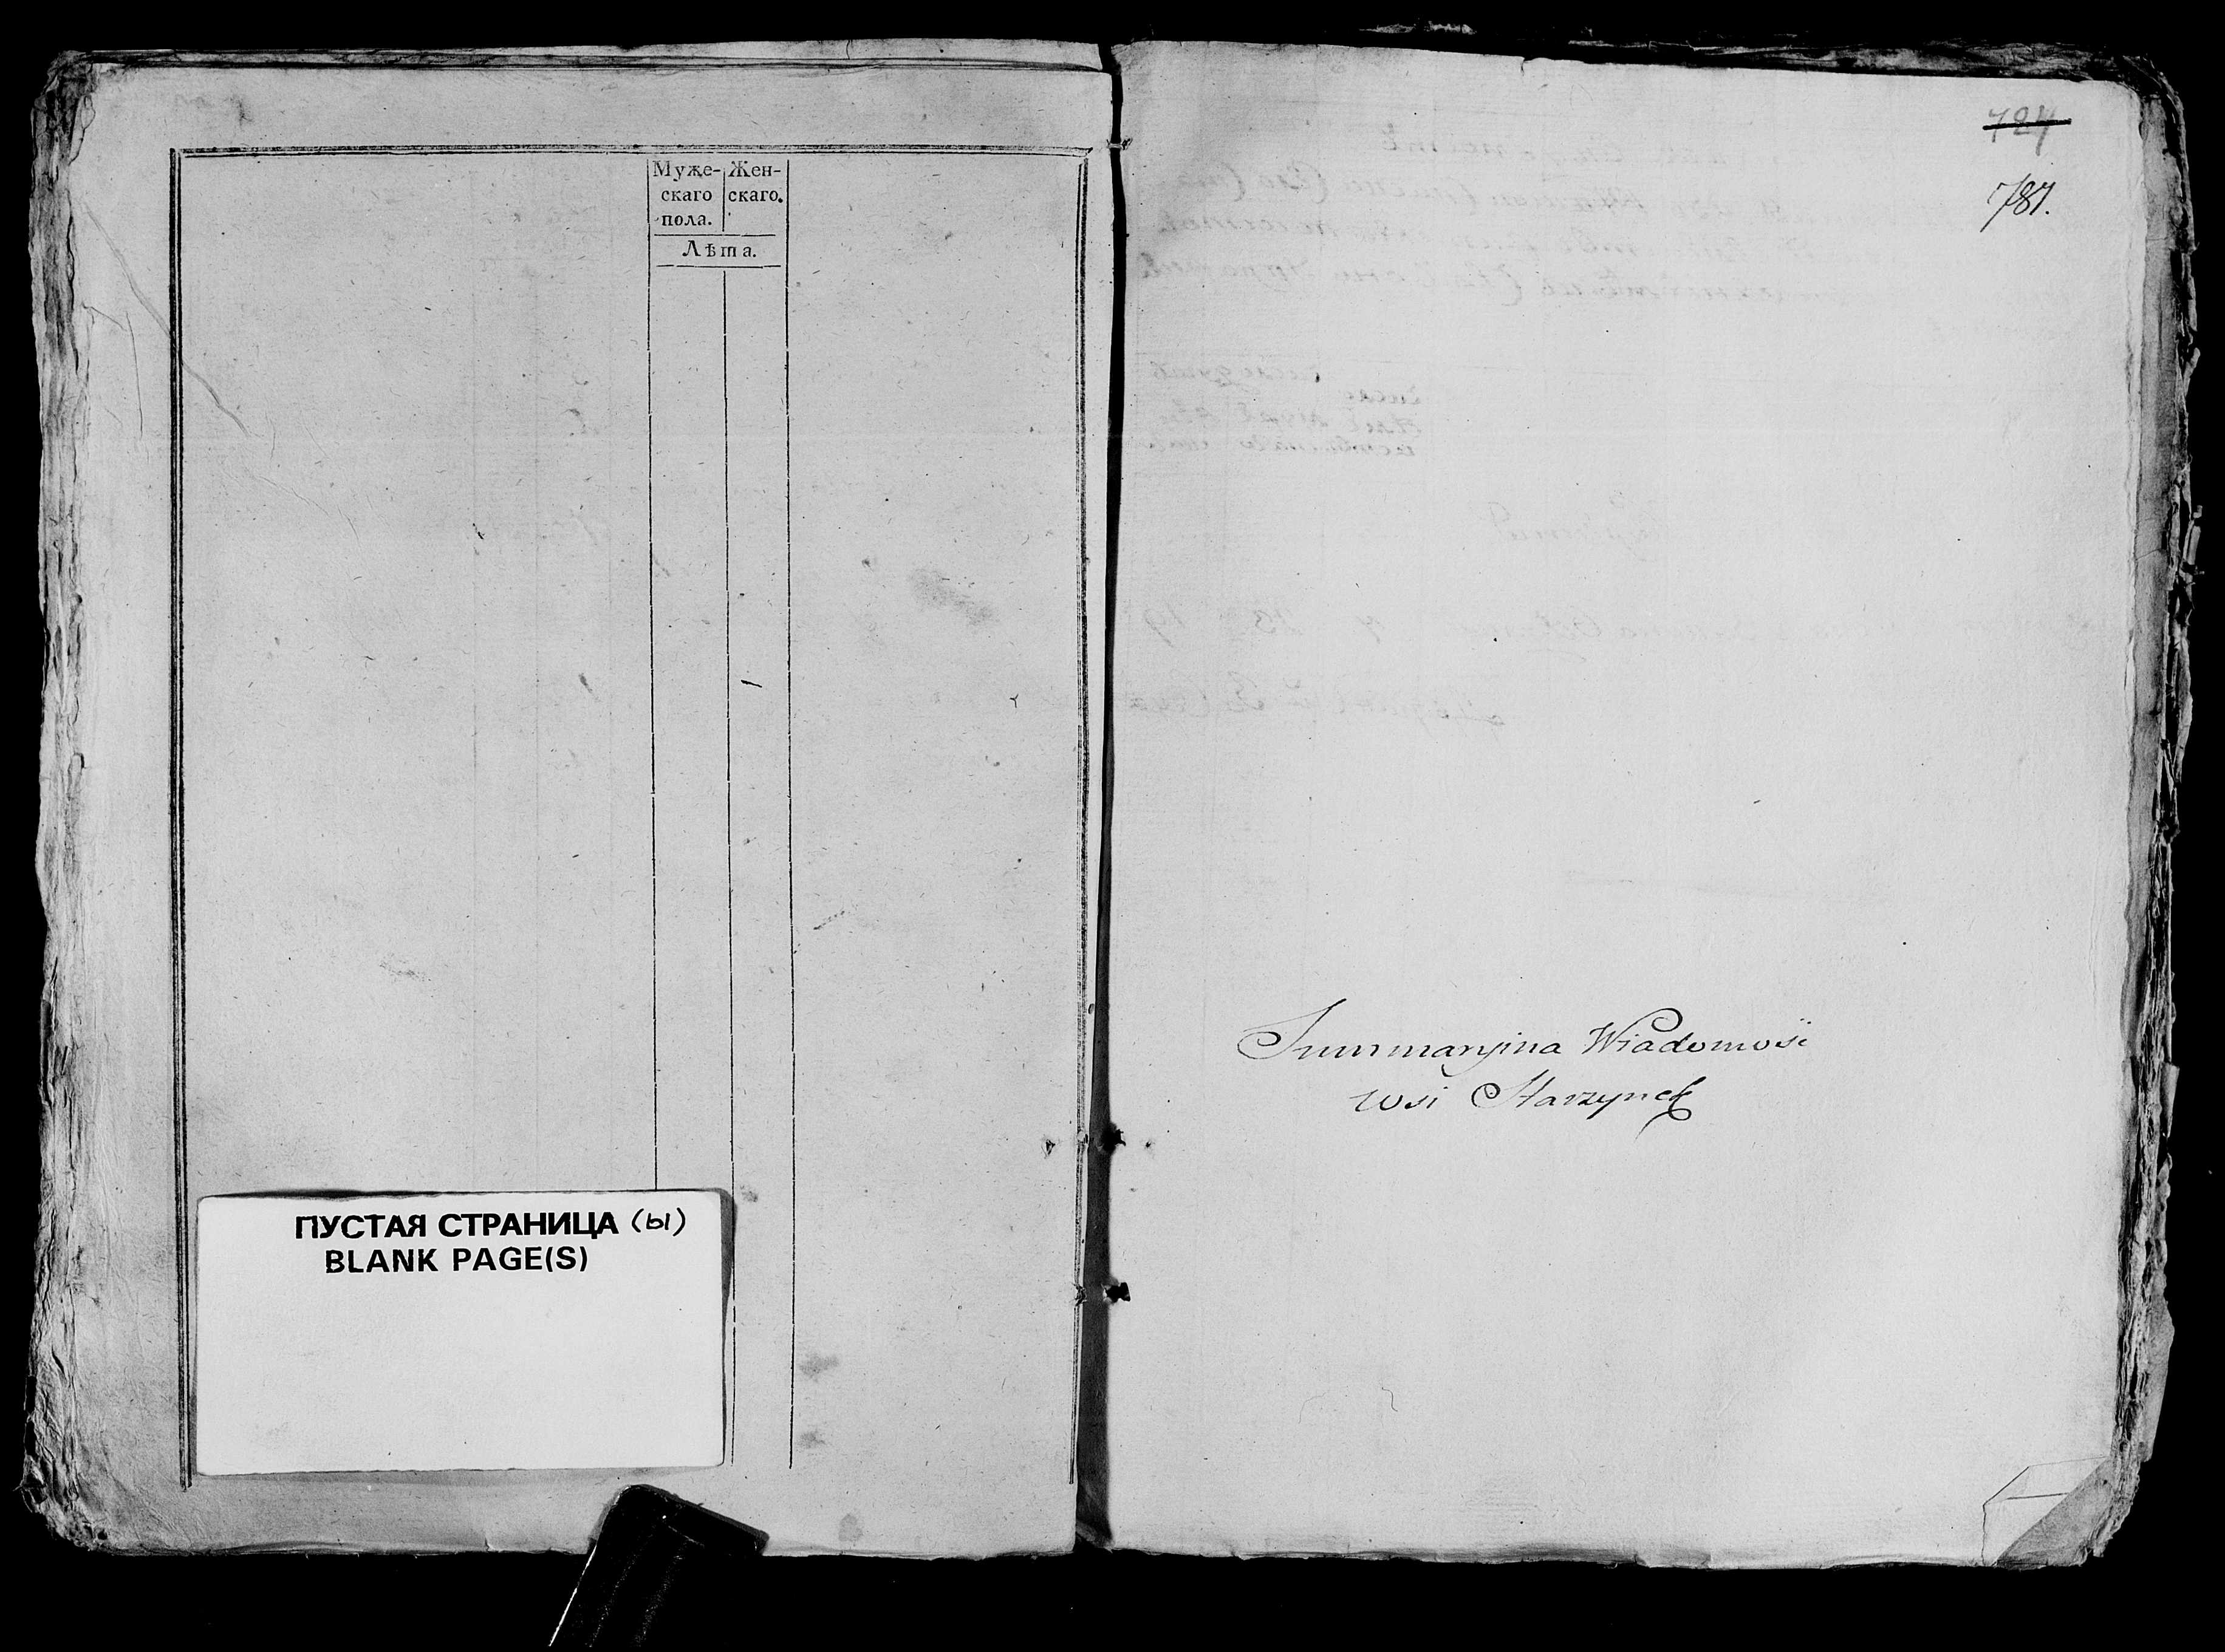 Муже-
скаго
пола.
Жен-
скаго.
Лѣта.
ПУСТАЯ СТРАНИЦА (Ы)
BLANK PAGE(S)
724
787.
Summaryina Wiadomość
wsi Starzynek